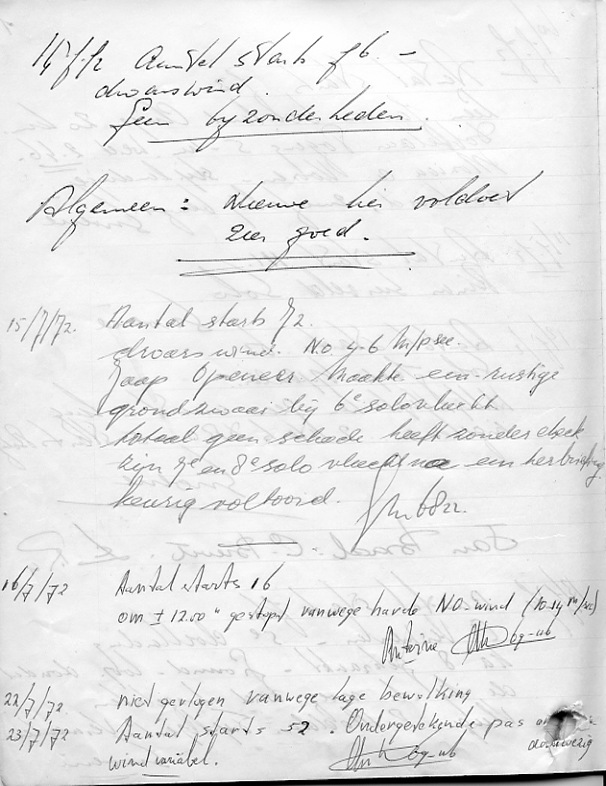 Aantal starts 76 -
dwarswind.
Geen byzonderheden.
Algemeen: nieuwe lier voldoet
zeer goed.
15/7/72. Aantal starts 72.
dwarswind. N.O. 4-6 M/sec.
Jaap maakte een rustige
grondzwaai bij 6e solovlucht
totaal geen schade heeft zonder
zijn 7e en 8e solo vlucht na een herbriefing
keurig voltooid.
16/7/72 Aantal starts 16
om ± 12.00 u gestopt vanwege harde N.O. wind (10-14 m/sec)
Antoine
22/7/72 niet gevlogen vanwege lage bewolking
23/7/72 Aantal starts 52. Ondergetekende pas
aanwezig
wind variabel.